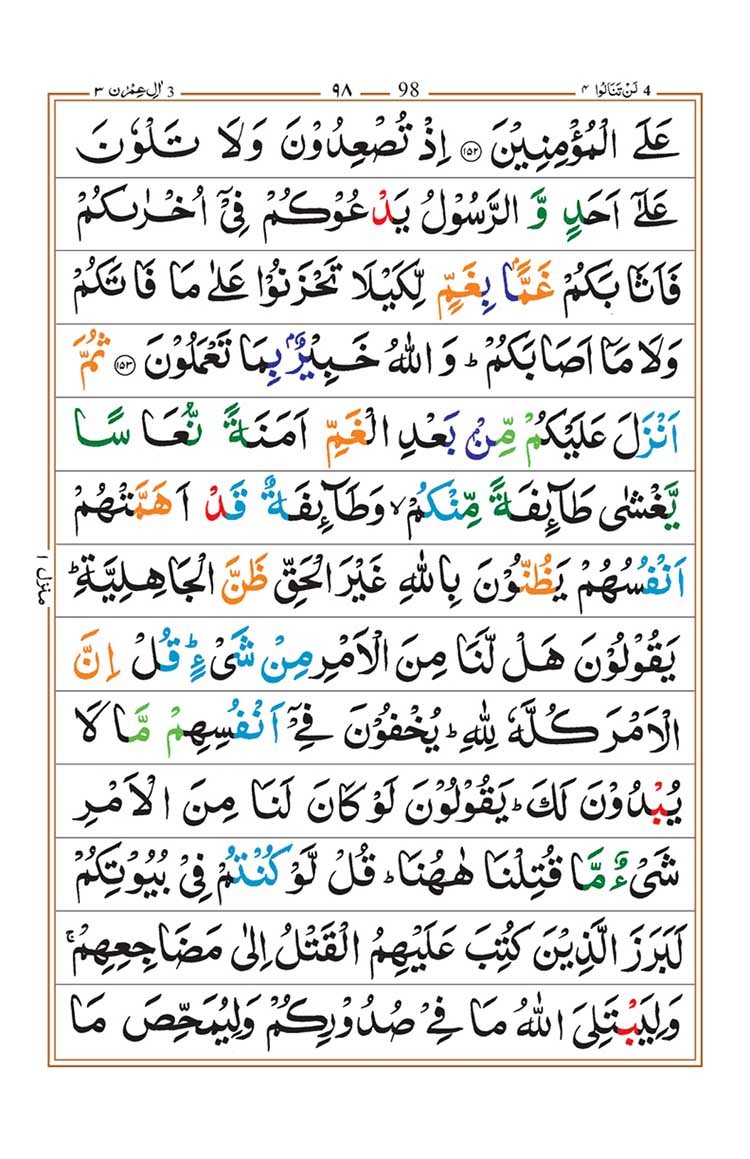 4 لَنْ تَنَالُوا ۴ ٩٨ 98 3 اٰلِ عِمْرٰن ٣
عَلَى الْمُؤْمِنِيْنَ ﴿۱۵۲﴾ اِذْ تُصْعِدُوْنَ وَلَا تَلْوٗنَ
عَلٰٓى اَحَدٍ وَّ الرَّسُوْلُ يَدْعُوْكُمْ فِيْٓ اُخْرٰىكُمْ
فَاَثَابَكُمْ غَمًّۢا بِغَمٍّ لِّكَيْلَا تَحْزَنُوْا عَلٰى مَا فَاتَكُمْ
وَلَا مَاۤ اَصَابَكُمْ ؕ وَاللّٰهُ خَبِيْرٌۢ بِمَا تَعْمَلُوْنَ ﴿۱۵۳﴾ ثُمَّ
اَنْزَلَ عَلَيْكُمْ مِّنْۢ بَعْدِ الْغَمِّ اَمَنَةً نُّعَاسًا
يَّغْشٰى طَآئِفَةً مِّنْكُمْ ۙ وَطَآئِفَةٌ قَدْ اَهَمَّتْهُمْ
اَنْفُسُهُمْ يَظُنُّوْنَ بِاللّٰهِ غَيْرَ الْحَقِّ ظَنَّ الْجَاهِلِيَّةِ ؕ
يَقُوْلُوْنَ هَلْ لَّنَا مِنَ الْاَمْرِ مِنْ شَيْءٍ ؕ قُلْ اِنَّ
الْاَمْرَ كُلَّهٗ لِلّٰهِ ؕ يُخْفُوْنَ فِيْٓ اَنْفُسِهِمْ مَّا لَا
يُبْدُوْنَ لَكَ ؕ يَقُوْلُوْنَ لَوْ كَانَ لَنَا مِنَ الْاَمْرِ
شَيْءٌ مَّا قُتِلْنَا هٰهُنَا ؕ قُلْ لَّوْ كُنْتُمْ فِيْ بُيُوْتِكُمْ
لَبَرَزَ الَّذِيْنَ كُتِبَ عَلَيْهِمُ الْقَتْلُ اِلٰى مَضَاجِعِهِمْ ۚ
وَلِيَبْتَلِيَ اللّٰهُ مَا فِيْ صُدُوْرِكُمْ وَلِيُمَحِّصَ مَا
منزل ١